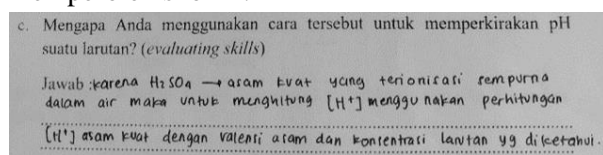 c. Mengapa Anda menggunakan cara tersebut untuk memperkirakan pH
suatu larutan? (evaluating skills)
Jawab :karena H2SO4 → asam kuat yang terionisasi sempurna
dalam air maka untuk menghitung [H+] menggunakan perhitungan
[H+] asam kuat dengan valensi asam dan konsentrasi larutan yg diketahui.